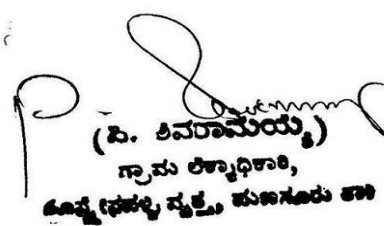 (ಪಿ. ಶಿವರಾಮಯ್ಯ)
ಗ್ರಾಮ ಲೆಕ್ಕಾಧಿಕಾರಿ,
ವೃತ್ತ, ಹುಣಸೂರು ತಾ॥